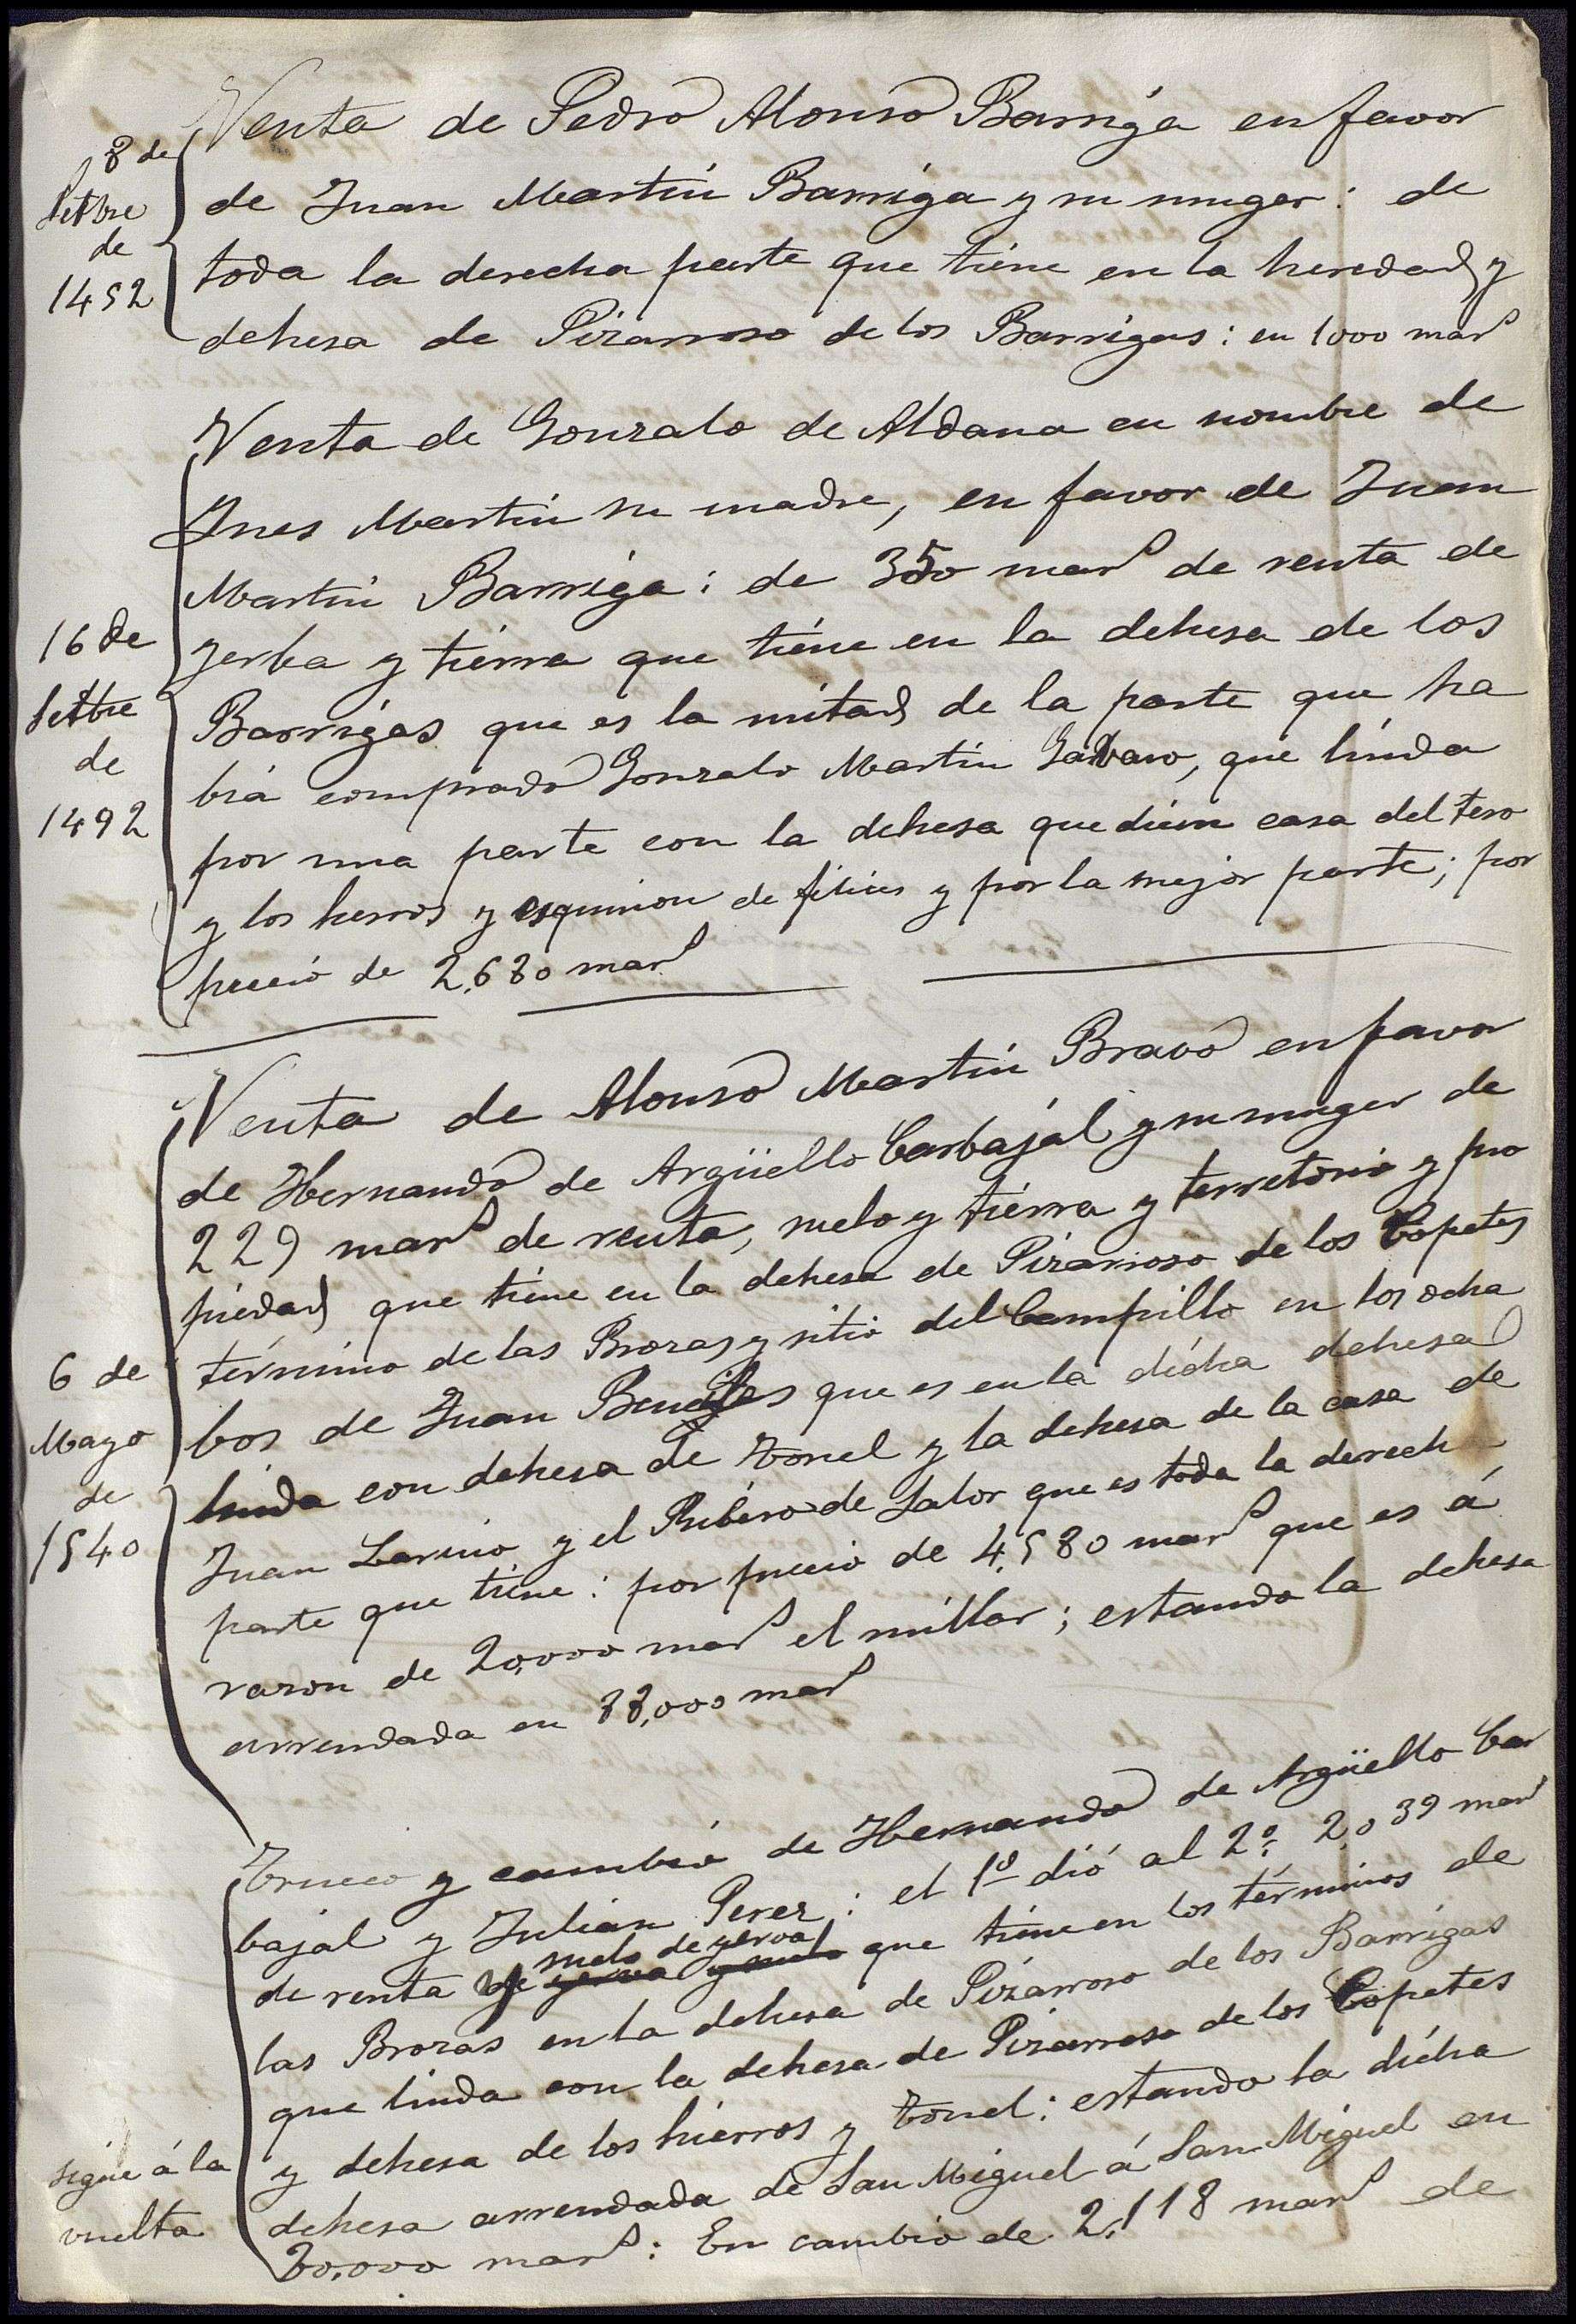 8 de
Setbre
de
1492
Venta de Pedro Alonso Barriga en favor
de Juan Martin Barriga y su muger: de
toda la derecha parte que tiene en la heredad y
dehesa de Pizarroso de los Barrigas: en 1000 mar^s
16 de
Setbre
de
1492
Venta de Gonzalo de Aldana en nombre de
Ynes Martin su madre, en favor de Juan
Martin Barriga: de 350 mar^s de renta de
yerba y tierra que tiene en la dehesa de los
Barrigas que es la mitad de la parte que ha
bia comprado Gonzalo Martin, que linda
por una parte con la dehesa que dicen casa del tero
y los hierros y de y por la mejor parte; por
precio de 2,680 mar^s
6 de
Mayo
de
1540
Venta de Alonso Martin Bravo en favor
de Hernando de Argüello Carbajal y su muger de
229 mar^s de renta, suelo y tierra y territorio y pro
piedad que tiene en la dehesa de Pizarroso de los Copetes
término de las Brozas y sitio del Campillo en los ocha
bos de Juan que es en la dicha dehesa
linda con dehesa de tonel y la dehesa de la casa de
Juan Larino y el Ribero de Salor que es toda la derecha
parte que tiene: por precio de 4,580 mar^s que es á
razon de 20,000 mar^s el millar; estando la dehesa
arrendada en 88,000 mar^s
Trueco y cambio de Hernando de Argüello Car
bajal y Julian Perez: el 1º dió al 2º 2,039 mar^s
suelo de yerva
de renta de que tiene en los términos de
las Brozas en la dehesa de Pizarroso de los Barrigas
que linda con la dehesa de Pizarroso de los Copetes
y dehesa de los hierros y tonel: estando la dicha
dehesa arrendada de San Miguel á San Miguel en
20,000 mar^s: En cambio de 2,118 mar^s de
sigue á la
vuelta